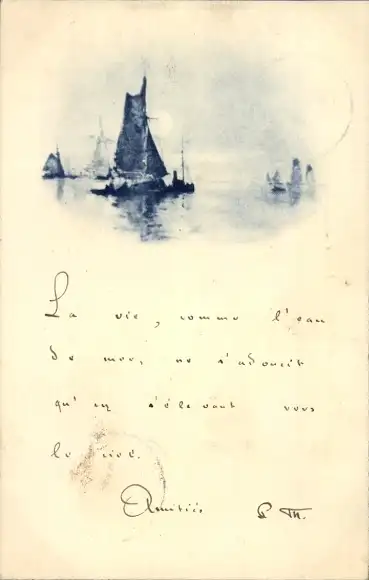 La vie, comme l'eau
de mer, ne s'adoucit
qu'en s'élevant vers
le ciel.
Amitiés